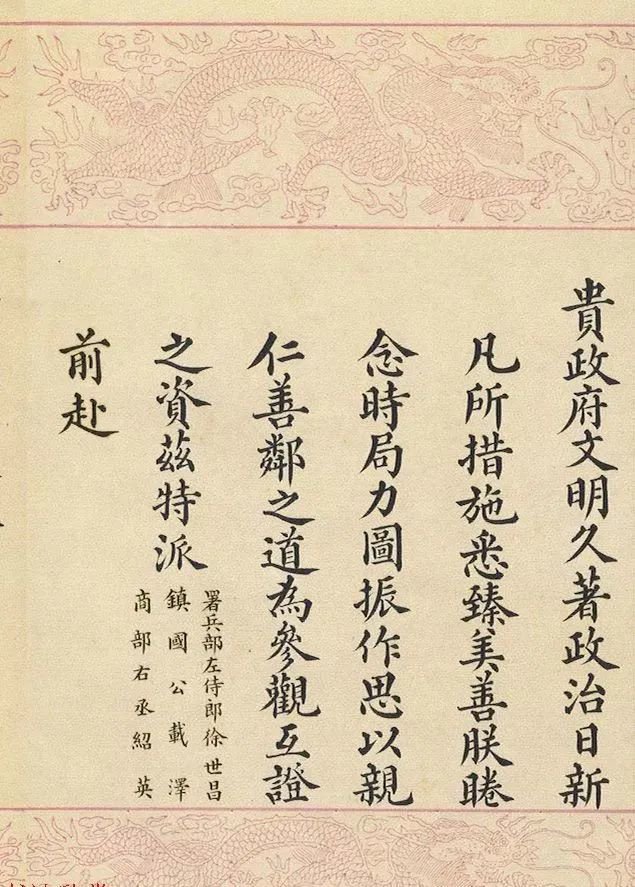 貴政府文明久著政治日新
凡所措施悉臻美善朕睠
念時局力圖振作思以親
仁善鄰之道為參觀互證
之資茲特派
署兵部左侍郎徐世昌
鎮國公載澤
商部右丞紹英
前赴